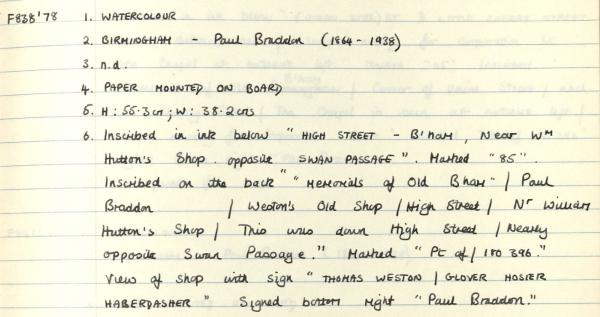 F838'78 1. WATERCOLOUR
2. BIRMINGHAM - Paul Braddon (1864-1938)
3. n.d.
4. PAPER MOUNTED ON BOARD
5. H: 55.3cm; W: 38.2cms
6. Inscribed in ink below "HIGH STREET - B'ham, Near Wm
Hutton's Shop. opposite SWAN PASSAGE". Marked "85".
Inscribed on the back" "Memorials of Old Bham" / Paul
Braddon / Weston's Old Shop / High Street / Nr William
Hutton's Shop / This was down High Street / Nearly
opposite Swan Passage." Marked "Pt of / 180 396."
View of shop with sign "THOMAS WESTON / GLOVER HOSIER
HABERDASHER" Signed bottom right "Paul Braddon."